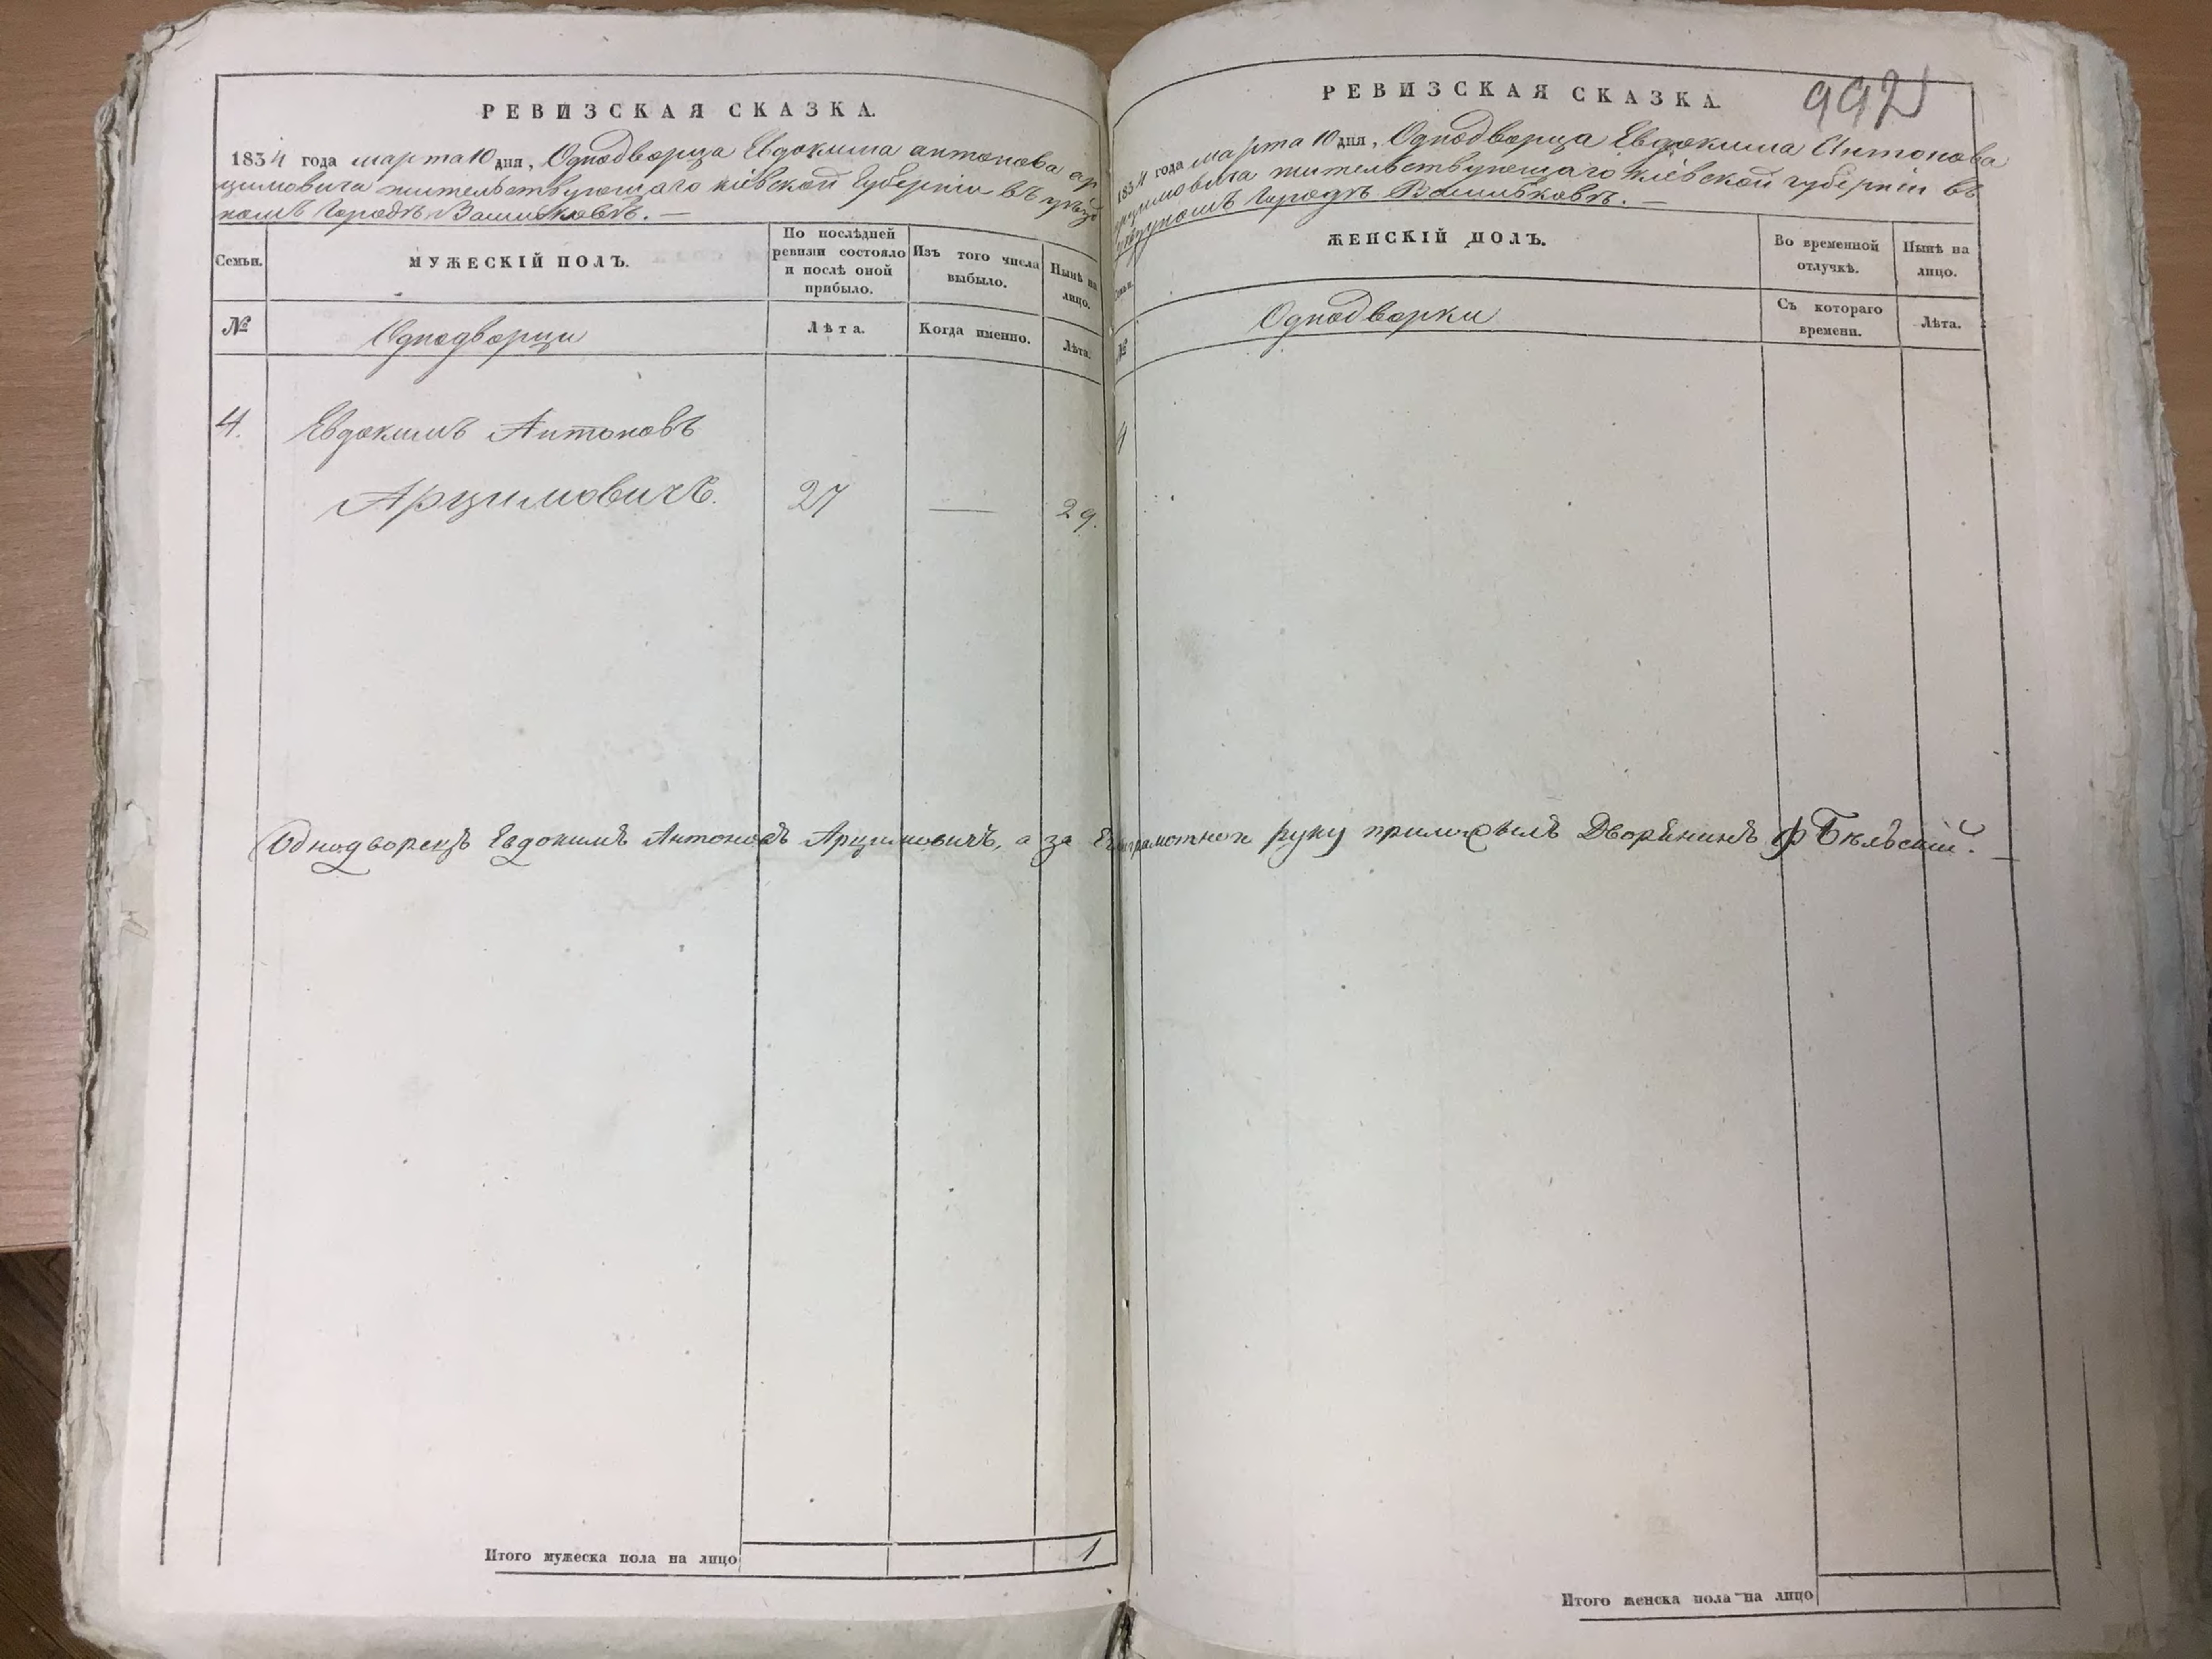 РЕВИЗСКАЯ СКАЗКА.
1834 года марта 10 дня, Однодворца Евдокима антонова ар
цимовича жительствующаго кіевской Губерніи въ уѣзд
номъ Городѣ Васильковѣ. —
Семьи.
МУЖЕСКІЙ ПОЛЪ.
По послѣдней
ревизіи состояло
и послѣ оной
прибыло.
Изъ того числа
выбыло.
Нынѣ на
лицо.
№
Однодворцы
Лѣта.
Когда именно.
Лѣта.
4.
Евдокимъ Антоновъ
Арцимовичъ.
27
—
29.
Однодворецъ Евдокимъ Антоновъ Арцимовичъ, а за руку приложилъ Дворянинъ Ф Бѣльскій. —
Итого мужеска пола на лицо
1
992
РЕВИЗСКАЯ СКАЗКА.
1834 года марта 10 дня, Однодворца Евдокима Антонова
арцимовича жительствующаго Кіевской губерніи въ
уѣздномъ Городѣ Васильковѣ. —
Семьи.
ЖЕНСКІЙ ПОЛЪ.
Во временной
отлучкѣ.
Нынѣ на
лицо.
№
Однодворки
Съ котораго
времени.
Лѣта.
4
Итого женска пола на лицо